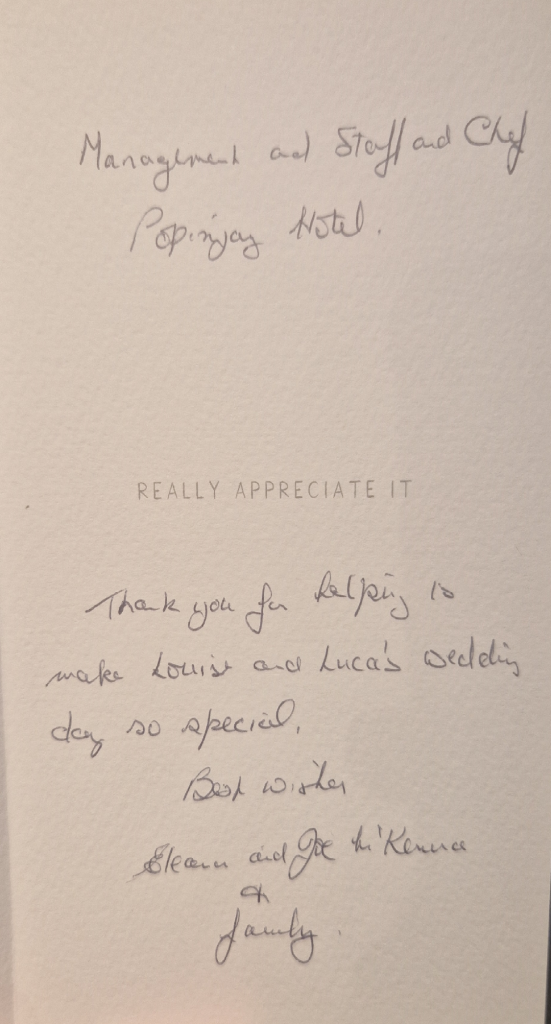 Management and Staff and Chef
Popinjay Hotel.
REALLY APPRECIATE IT
Thank you for helping to
make Louise and Luca's wedding
day so special.
Best wishes
and Joe McKenna
&
family.